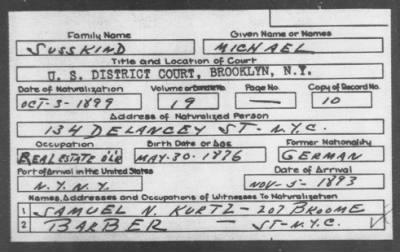 Family Name Given Name or Names
SUSSKIND MICHAEL
Title and Location of Court
U. S. DISTRICT COURT, BROOKLYN, N.Y.
Date of Naturalization Volume or Bundle No. Page No. Copy of Record No.
OCT-3-1899 19 — 10
Address of Naturalized Person
134 DELANCEY ST-N.Y.C.
Occupation Birth Date or Age Former Nationality
REAL ESTATE DLR MAY-30-1876 GERMAN
Port of Arrival in the United States Date of Arrival
N.Y.N.Y. NOV-5-1893
Names, Addresses and Occupations of Witnesses To Naturalization
1 SAMUEL N. KURTZ - 207 BROOME
2 BARBER — ST-N.Y.C.